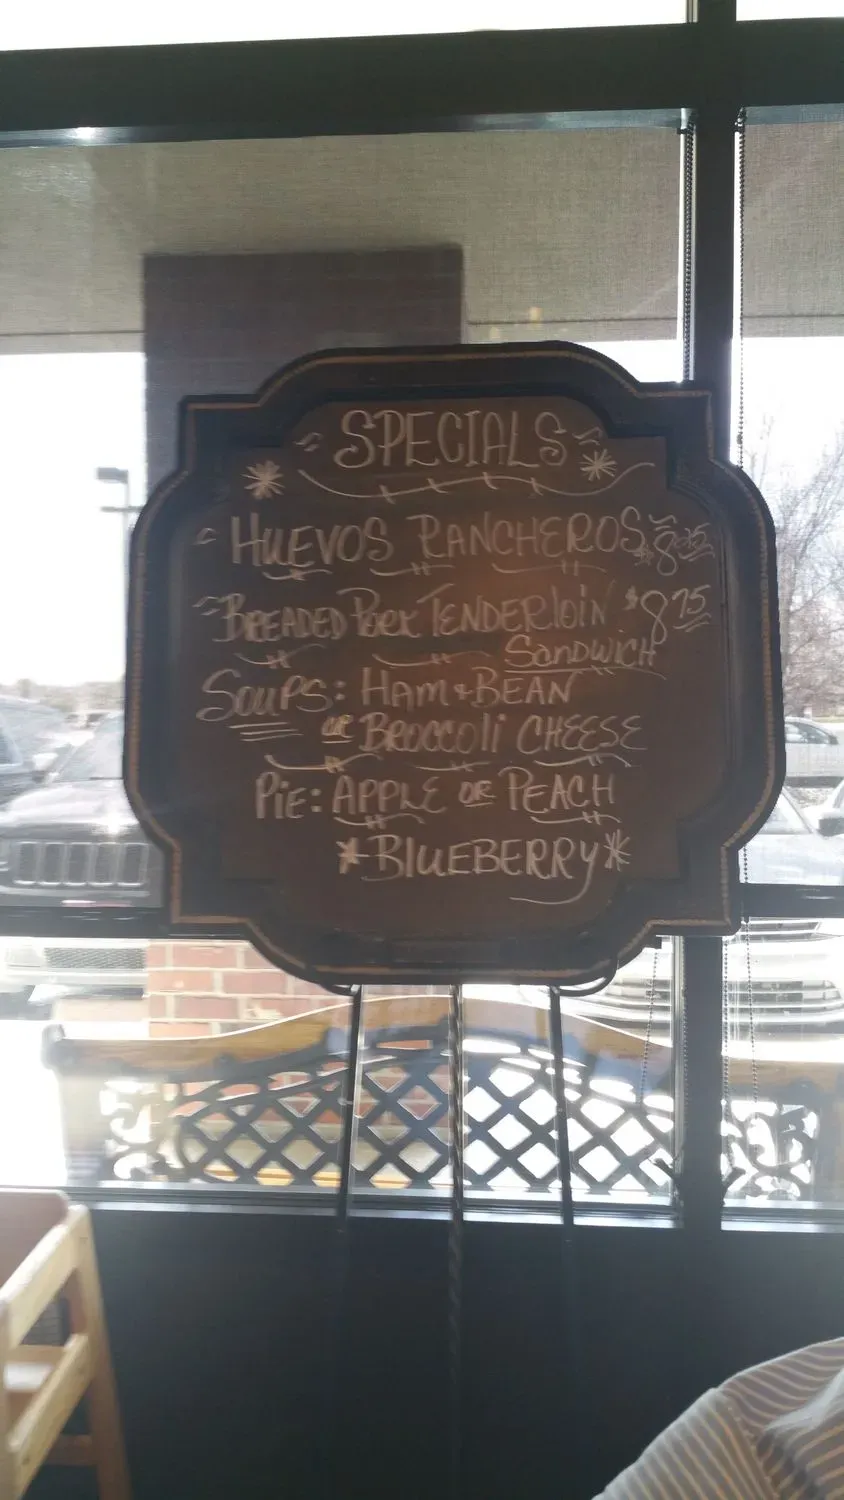 SPECIALS
HUEVOS RANCHEROS
BREADED PORK TENDERloiN $8.75
SANDWICH
SOUPS: HAM & BEAN
OR BROCCOli CHEESE
PiE: APPLE OR PEACH
*BlUEBERRY*